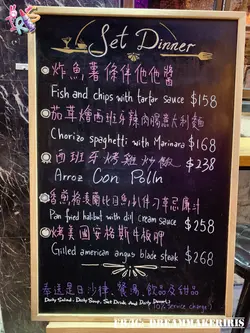 Set Dinner
炸魚薯條伴他他醬
Fish and chips with tartar sauce $158
茄蓉燴西班牙辣肉腸意大利麵
Chorizo spaghetti with Marinara $168
西班牙烤雞炒飯 $238
Arroz Con Pollo
香煎格陵蘭比目魚扒伴刁草忌廉汁
Pan fried halibut with dill cream sauce $258
烤美國安格斯牛板腍
Grilled american angus blade steak $268
奉送是日沙律、餐湯、飲品及甜品
(Daily Salad, Daily Soup, Set Drink And Daily Dessert)
(10% service charge)